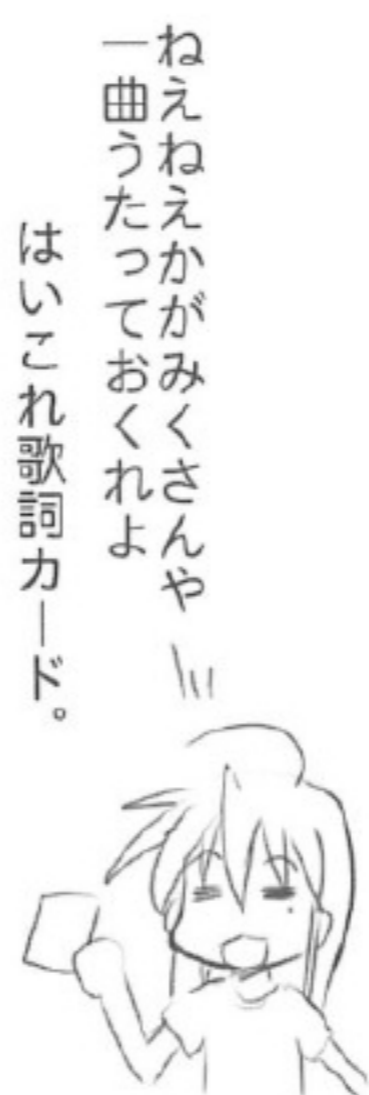 ねえねえかがみくさんや
一曲うたっておくれよ
はいこれ歌詞カード。